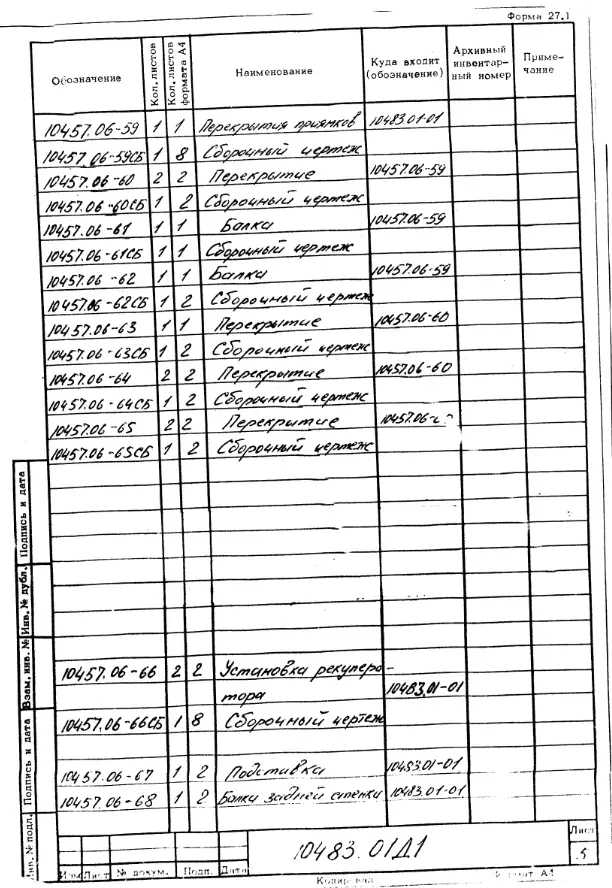 Форма 27.1
Обозначение Кол. листов Кол. листов формата А4 Наименование Куда входит (обозначение) Архивный инвентарный номер Примечание
10457.06-59 1 1 Перекрытия приямков 10483.01-01
10457.06-59СБ 1 8 Сборочный чертеж
10457.06-60 2 2 Перекрытие 10457.06-59
10457.06-60СБ 1 2 Сборочный чертеж
10457.06-61 1 1 Балка 10457.06-59
10457.06-61СБ 1 1 Сборочный чертеж
10457.06-62 1 1 Балка 10457.06-59
10457.06-62СБ 1 2 Сборочный чертеж
10457.06-63 1 1 Перекрытие 10457.06-60
10457.06-63СБ 1 2 Сборочный чертеж
10457.06-64 2 2 Перекрытие 10457.06-60
10457.06-64СБ 1 2 Сборочный чертеж
10457.06-65 2 2 Перекрытие
10457.06-65СБ 1 2 Сборочный чертеж
10457.06-66 2 2 Установка рекупера-
тора 10483.01-01
10457.06-66СБ 1 8 Сборочный чертеж
10457.06-67 1 2 Подставка 10483.01-01
10457.06-68 1 2 Балки задней стенки 10483.01-01
Подпись и дата
Инв. № дубл.
Взам. инв. №
Подпись и дата
Инв. № подл.
Изм Лист № докум. Подп. Дата
10483.01Д1
Лист
5
Копировал Формат А4